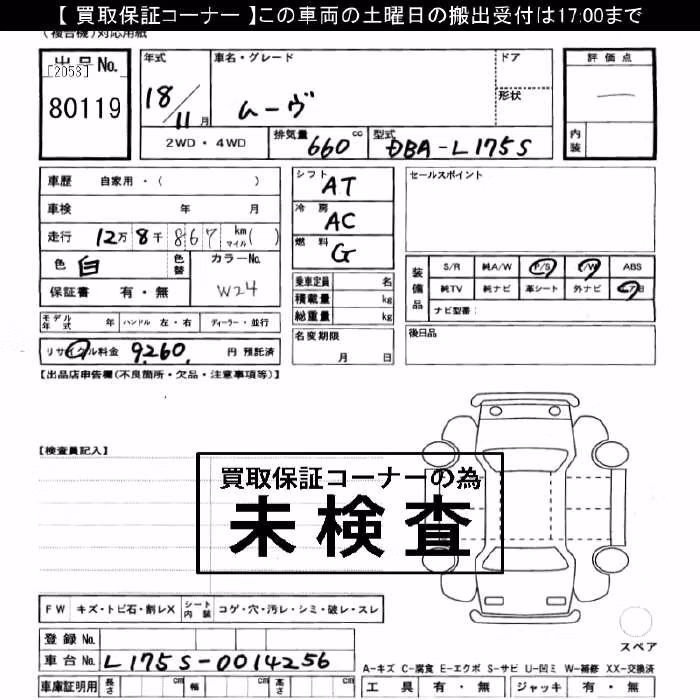 【 買取保証コーナー 】この車両の土曜日の搬出受付は17:00まで
(複合機)対応用紙
出品No.
[2053]
80119
年式
18/11月
車名・グレード
ムーヴ
ドア
形状
評価点
—
内装
2WD・4WD
排気量 660 cc
型式 DBA-L175S
車歴 自家用・( )
車検 年 月
走行 12万8千867 km マイル( )
色 白 色替
カラーNo. W24
保証書 有・無
シフト AT
冷房 AC
燃料 G
セールスポイント
装備品
S/R 純A/W P/S P/W ABS
純TV 純ナビ 革シート 外ナビ エアB
ナビ型番:
乗車定員 名
積載量 kg
総重量 kg
モデル年式 年 ハンドル 左・右 ディーラー・並行
名変期限 月 日
後日品
リサイクル料金 9260. 円 預託済
【出品店申告欄(不良箇所・欠品・注意事項等)】
【検査員記入】
買取保証コーナーの為
未検査
FW キズ・トビ石・割レX シート内装 コゲ・穴・汚レ・シミ・破レ・スレ
スペア
登録No.
車台No. L175S-0014256
A-キズ C-腐食 E-エクボ S-サビ U-凹ミ W-補修 XX-交換済
車庫証明用 長さ cm 幅 cm 高さ cm
工具 有・無 ジャッキ 有・無